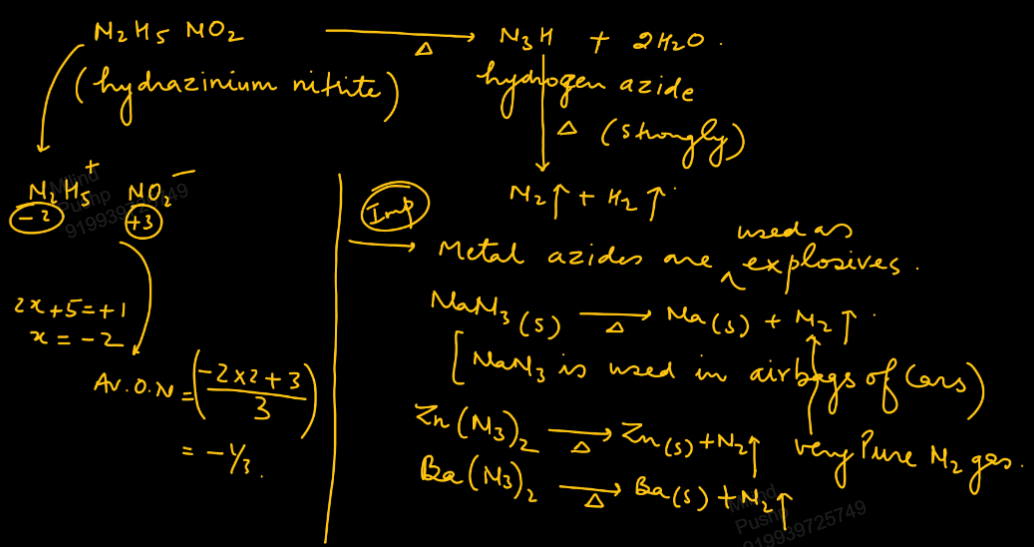 N₂H₅ NO₂ ⟶ Δ N₃H + 2H₂O.
(hydrazinium nitrite) hydrogen azide
Δ (strongly)
N₂↑ + H₂↑.
N₂H₅⁺ NO₂⁻
-2 +3
2x+5=+1
x = -2
Av.O.N = (-2x2+3/3)
= -1/3.
Imp
→ Metal azides are ^ used as explosives.
NaN₃(s) ⟶ Δ Na(s) + N₂↑.
[NaN₃ is used in airbags of Cars)
Zn(N₃)₂ ⟶ Δ Zn(s)+N₂↑ very Pure N₂ gas.
Ba(N₃)₂ ⟶ Δ Ba(s)+N₂↑
Milind
Pushp
919939725749
Milind
Pushp
919939725749